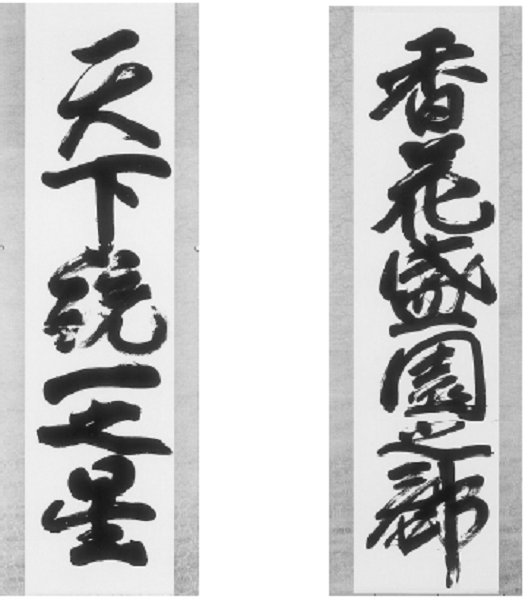 香花盛園之郷
天下統一之星